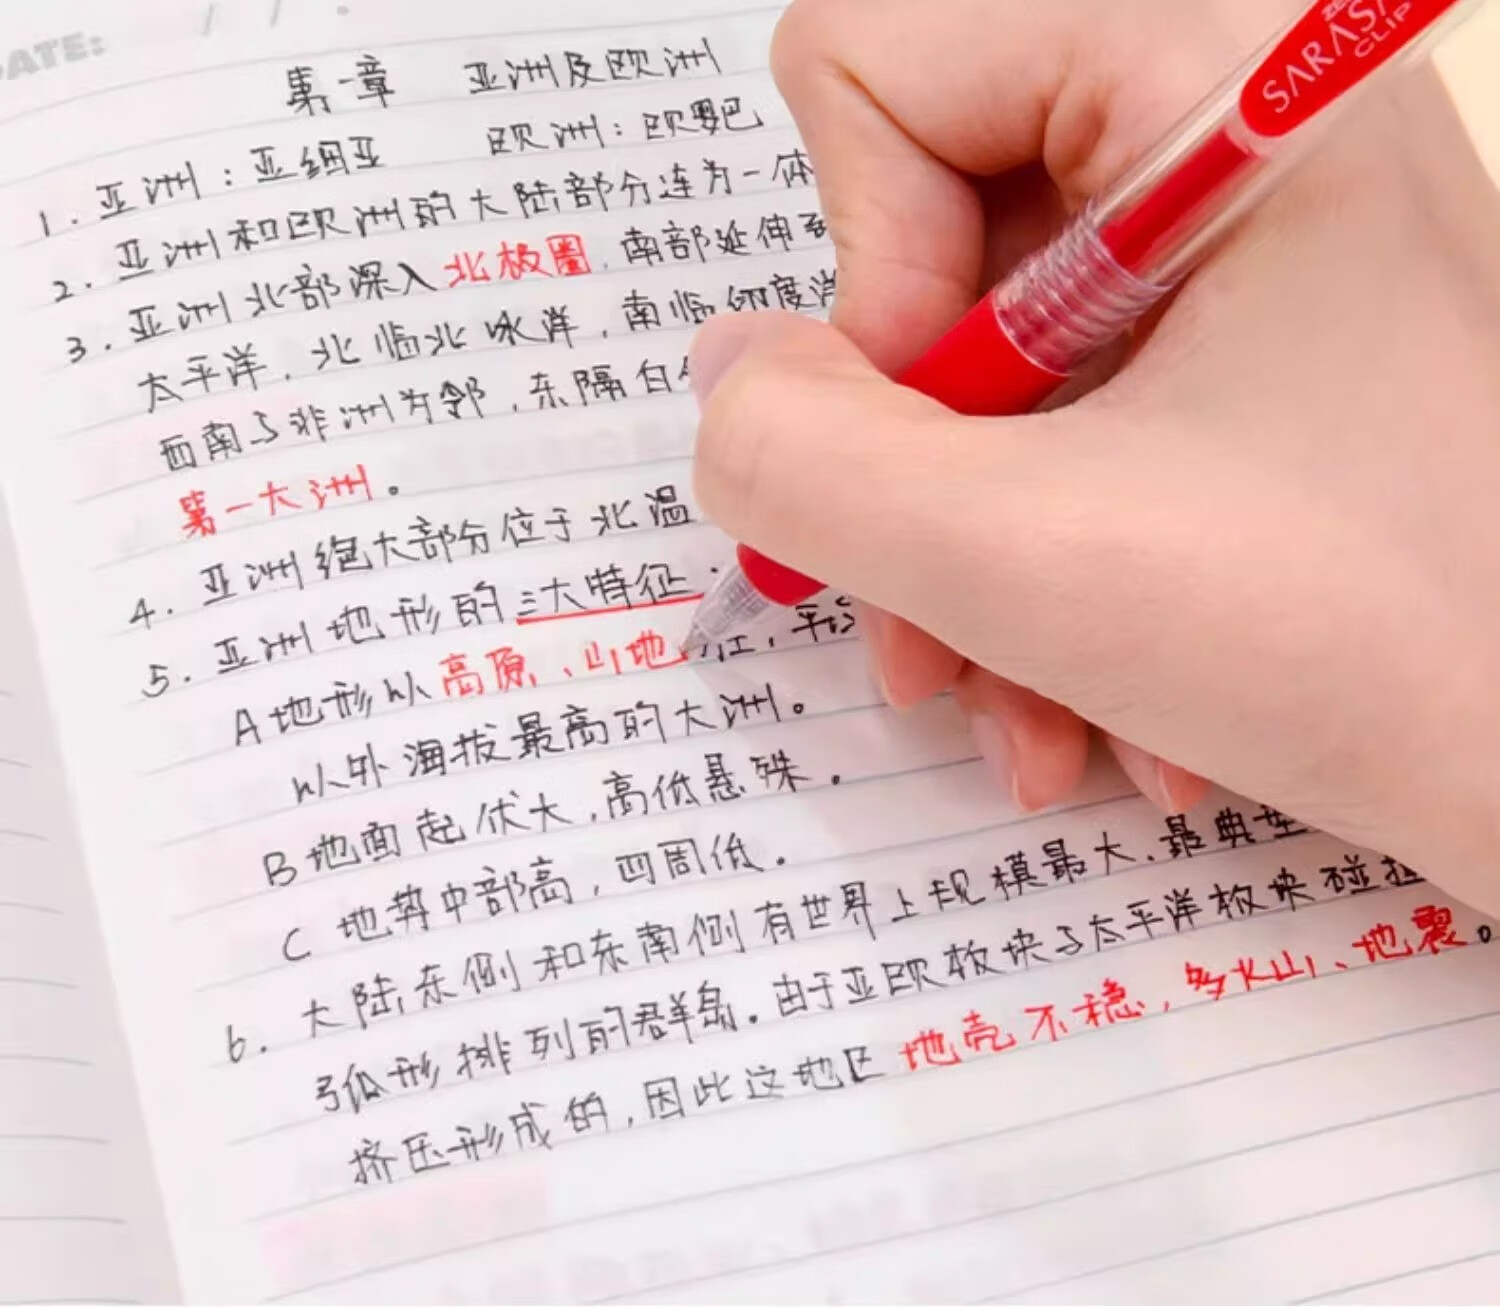 DATE: / / .
第一章 亚洲及欧洲
1. 亚洲：亚细亚 欧洲：欧罗巴
2. 亚洲和欧洲的大陆部分连为一体
3. 亚洲北部深入北极圈，南部延伸到
太平洋，北临北冰洋，南临印度洋
西南与非洲为邻，东隔白
第一大洲。
4. 亚洲绝大部分位于北温
5. 亚洲地形的三大特征：
A地形以高原、山地 ，平均
以外海拔最高的大洲。
B地面起伏大，高低悬殊。
C 地势中部高，四周低。
6. 大陆东侧和东南侧有世界上规模最大，最典型
弧形排列的群岛。由于亚欧板块与太平洋板块碰撞
挤压形成的，因此这地区地壳不稳，多火山、地震。
SARASA
CLIP